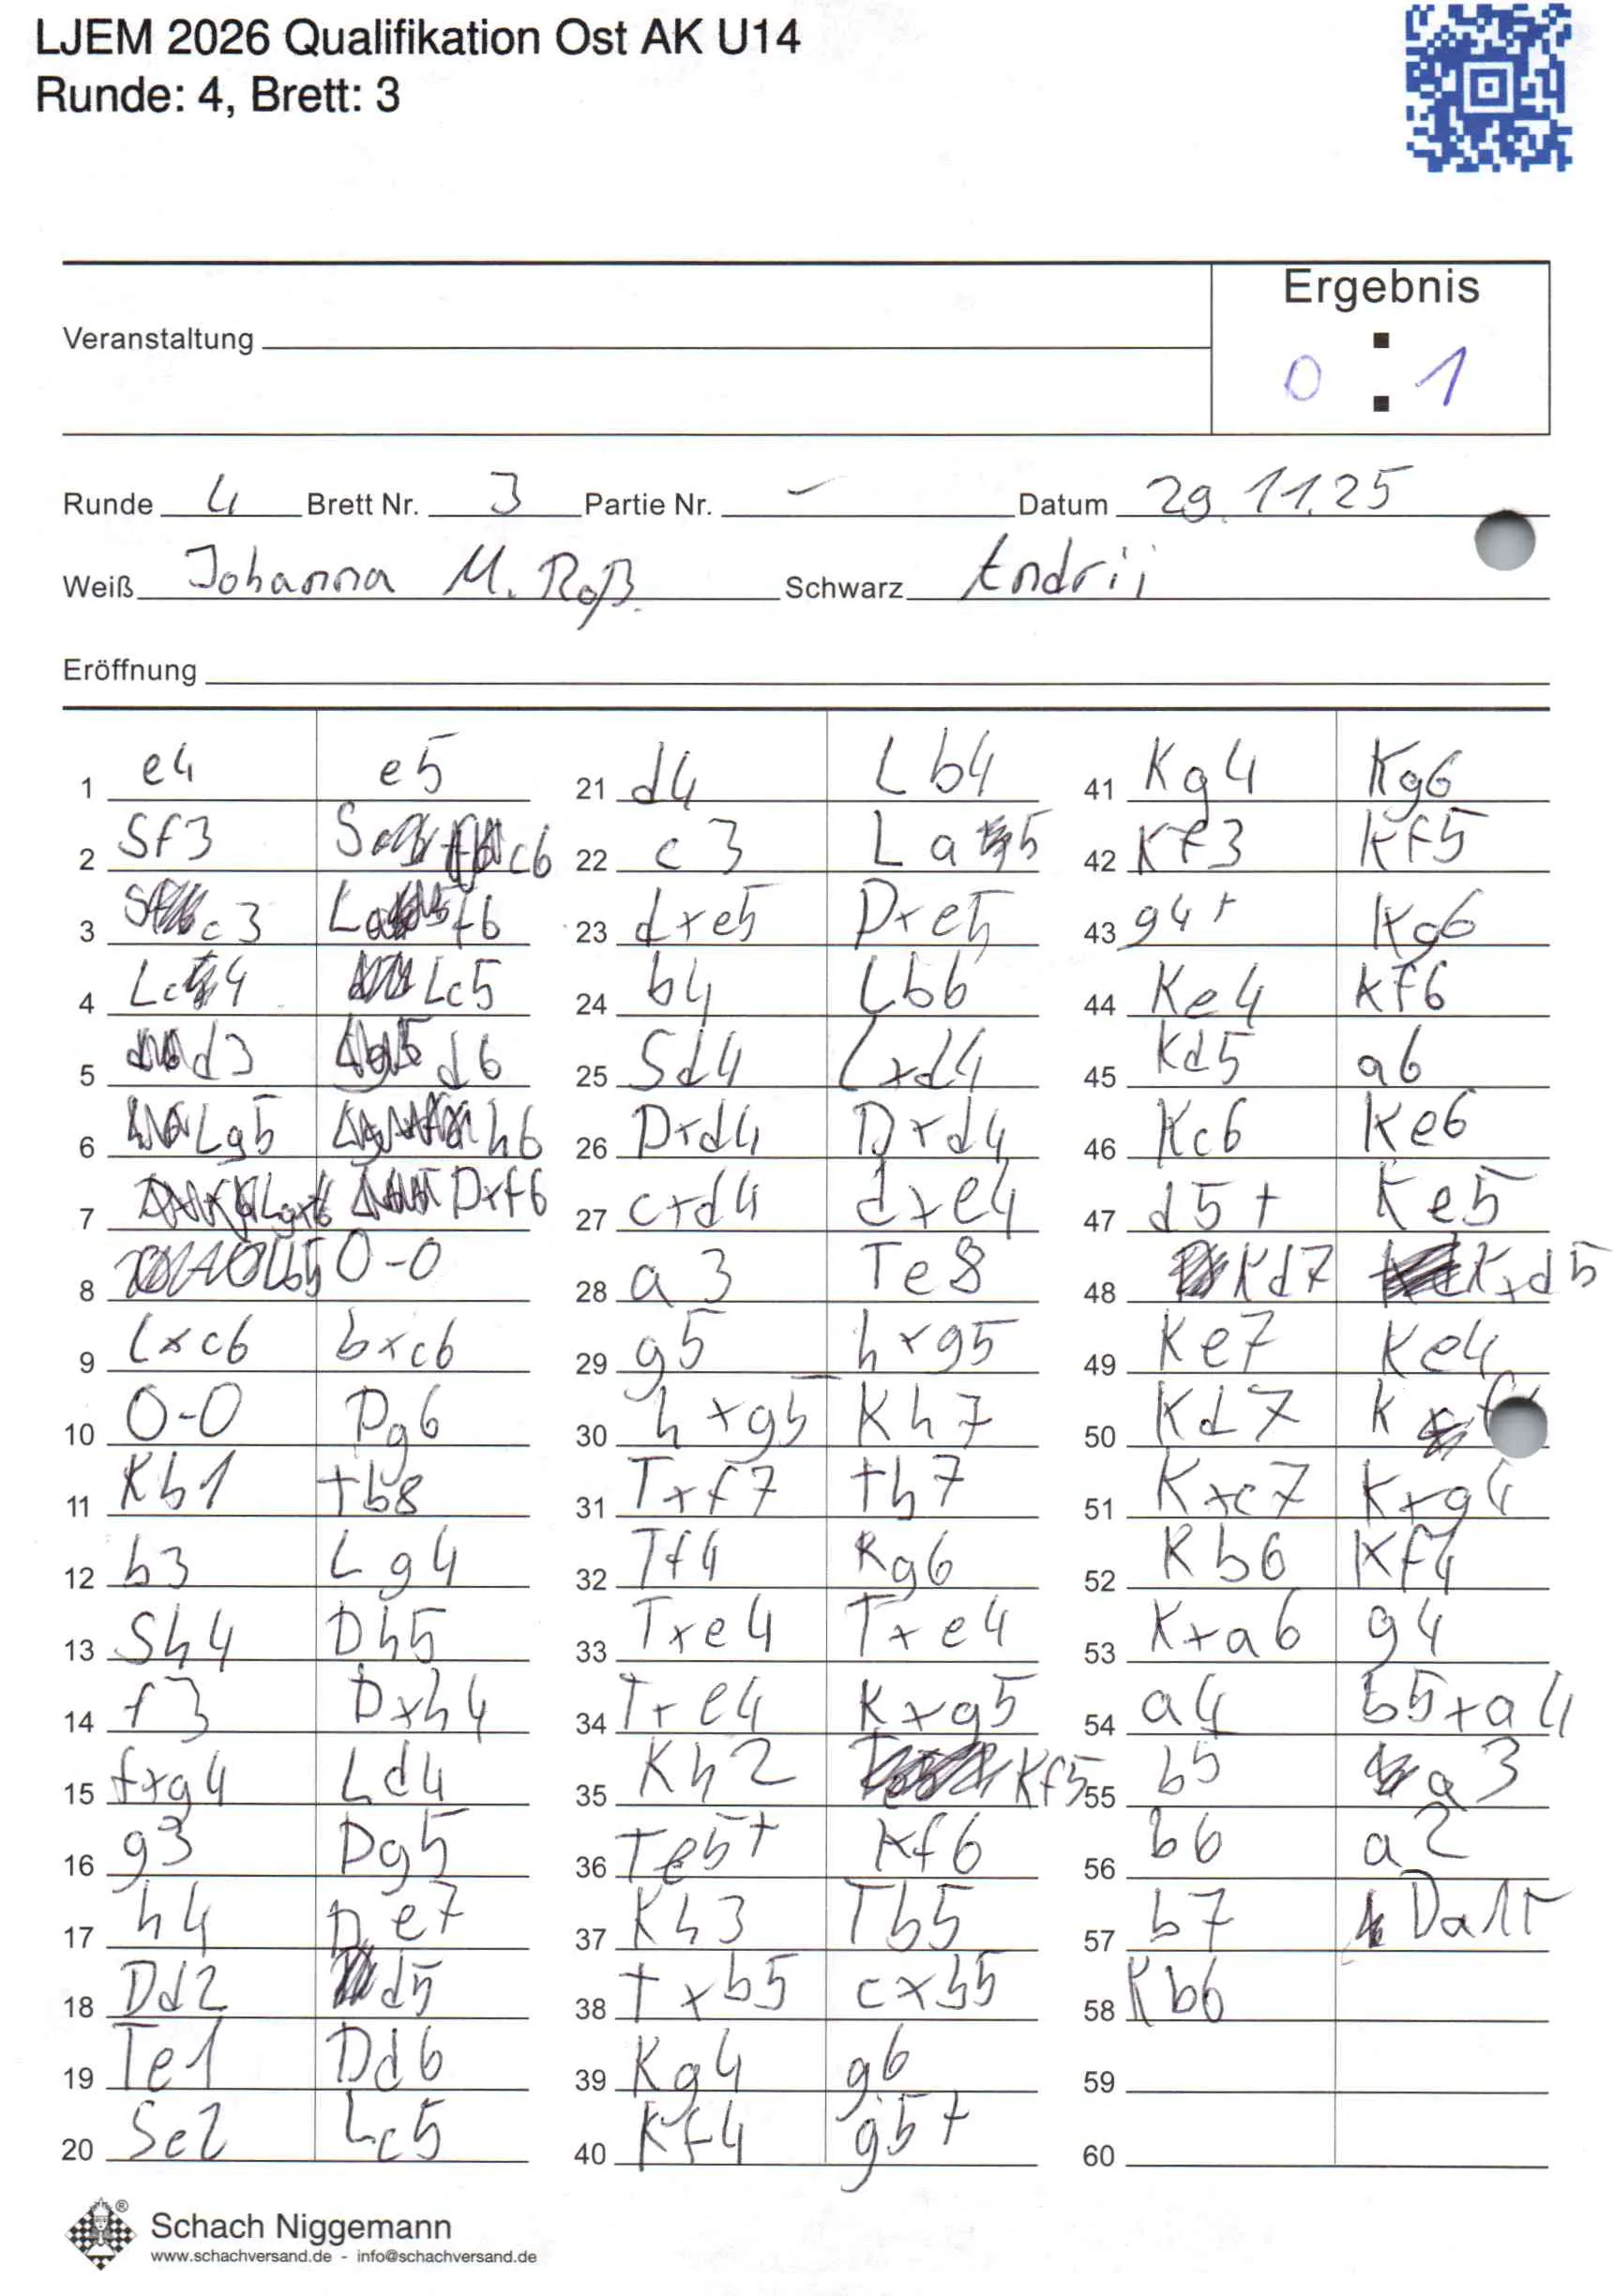 LJEM 2026 Qualifikation Ost AK U14
Runde: 4, Brett: 3
Ergebnis
Veranstaltung
0 : 1
Runde 4 Brett Nr. 3 Partie Nr. - Datum 29.11.25
Weiß Johanna M. Roß. Schwarz Andrii
Eröffnung
1 e4 e5
2 Sf3 Sc6
3 Sc3 Lf6
4 Lc4 Lc5
5 d3 d6
6 Lg5 h6
7 Lgxf6 Dxf6
8 Lb5 0-0
9 Lxc6 bxc6
10 0-0 Dg6
11 Kh1 Tb8
12 b3 Lg4
13 Sh4 Dh5
14 f3 Dxh4
15 fxg4 Ld4
16 g3 Dg5
17 h4 De7
18 Dd2 d5
19 Te1 Dd6
20 Se2 Lc5
21 d4 Lb4
22 c3 La5
23 dxe5 Dxe5
24 b4 Lb6
25 Sd4 Lxd4
26 Dxd4 Dxd4
27 cxd4 dxe4
28 a3 Te8
29 g5 hxg5
30 hxg5 Kh7
31 Txf7 Th7
32 Tf4 Kg6
33 Txe4 Txe4
34 Txe4 Kxg5
35 Kh2 Kf5
36 Te5+ Kf6
37 Kh3 Tb5
38 Txb5 cxb5
39 Kg4 g6
40 Kf4 g5+
41 Kg4 Kg6
42 Kf3 Kf5
43 g4+ Kg6
44 Ke4 Kf6
45 Kd5 a6
46 Kc6 Ke6
47 d5+ Ke5
48 Kd7 Kxd5
49 Ke7 Ke4
50 Kd7 K
51 Kxc7 Kxg4
52 Kb6 Kf4
53 Kxa6 g4
54 a4 b5xa4
55 b5 a3
56 b6 a2
57 b7 Da1+
58 Kb6
59
60
® Schach Niggemann
www.schachversand.de - info@schachversand.de